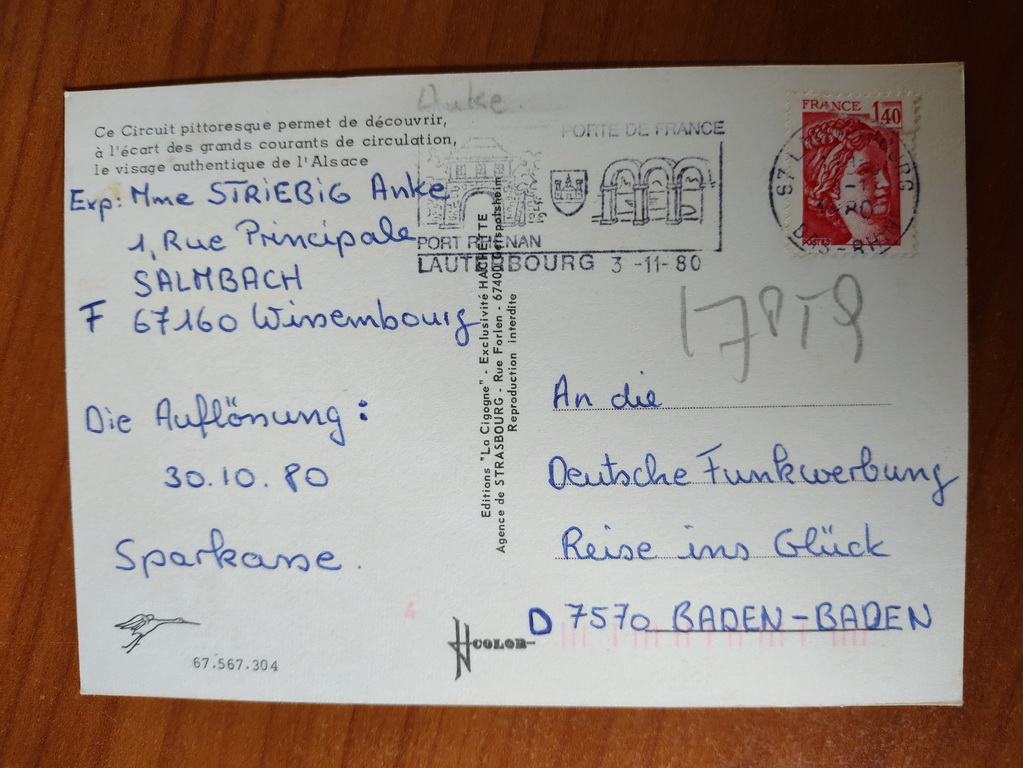 Anke
Ce Circuit pittoresque permet de découvrir,
à l'écart des grands courants de circulation,
le visage authentique de l'Alsace
Exp: Mme STRIEBIG Anke
1, Rue Principale
SALMBACH
F 67160 Wissembourg
Die Auflösung:
30.10.80
Sparkasse.
67.567.304
PORTE DE FRANCE
PORT RHENAN
LAUTERBOURG 3-11-80
Editions "La Cigogne" - Exclusivité HACHETTE
Agence de STRASBOURG - Rue Forlen - 67400 Geispolsheim
Reproduction interdite
COLOR
4
FRANCE 1,40
POSTES
An die
Deutsche Funkwerbung
Reise ins Glück
D 7570 BADEN-BADEN